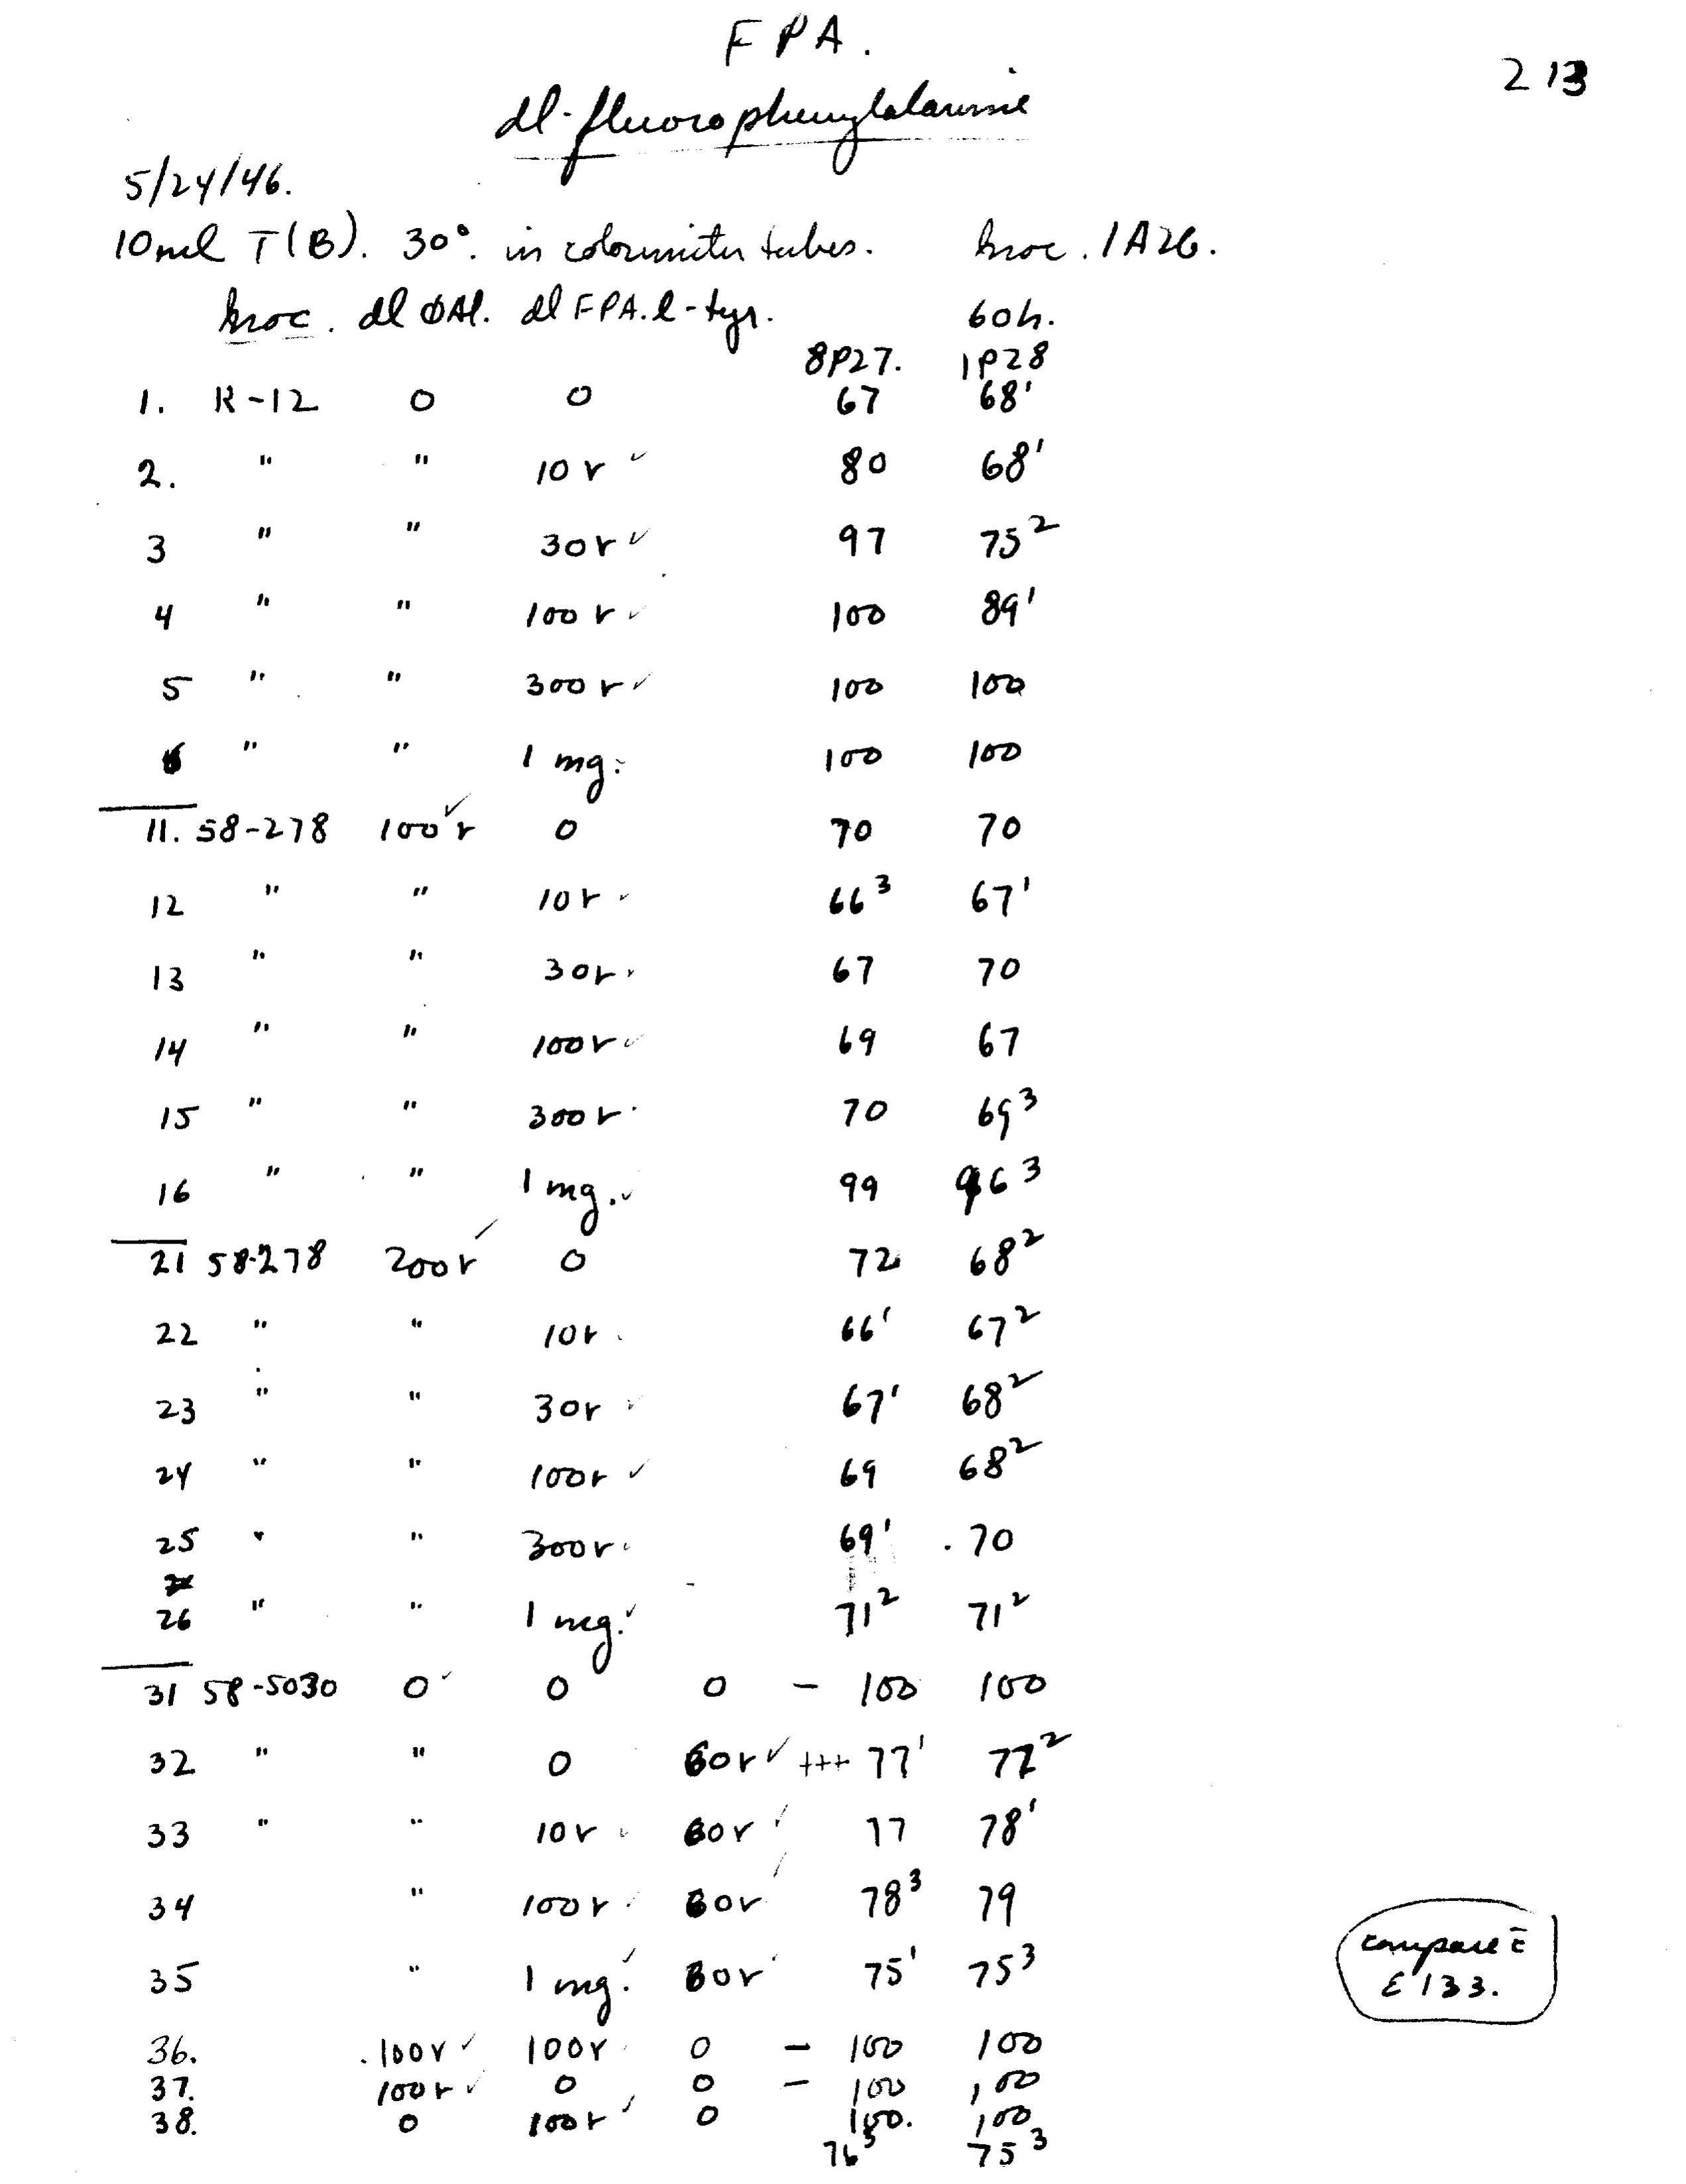 FPA.
213
dl-fluorophenylalanine
5/24/46.
10 ml T(B). 30°. in colorimeter tubes. Inoc. 1A26.
Inoc. dl ΦAl. dl FPA. l-tyr. 60h.
8P27. 1P28
1. K-12 0 0 67 68'
2. " " 10 r ✓ 80 68'
3 " " 30 r ✓ 97 75²
4 " " 100 r ✓ 100 89'
5 " " 300 r ✓ 100 100
6 " " 1 mg. 100 100
11. 58-278 100 r ✓ 0 70 70
12 " " 10 r ✓ 66³ 67'
13 " " 30 r 67 70
14 " " 100 r ✓ 69 67
15 " " 300 r 70 69³
16 " " 1 mg. ✓ 99 96³
21 58-278 200 r ✓ 0 72 68²
22 " " 10 r 66' 67²
23 " " 30 r ✓ 67' 68²
24 " " 100 r ✓ 69 68²
25 " " 300 r 69' 70
26 " " 1 mg. ✓ 71² 71²
31 58-5030 0 ✓ 0 0 - 100 100
32 " " 0 60 r ✓ +++ 77' 77²
33 " " 10 r ✓ 60 r ✓ 77 78'
34 " 100 r 60 r ✓ 78³ 79
35 " 1 mg. ✓ 60 r 75' 75³
36. 100 r ✓ 100 r 0 - 100 100
37. 100 r ✓ 0 0 - 100 100
38. 0 100 r ✓ 0 100. 100
76³ 75³
compare c̄
E 133.